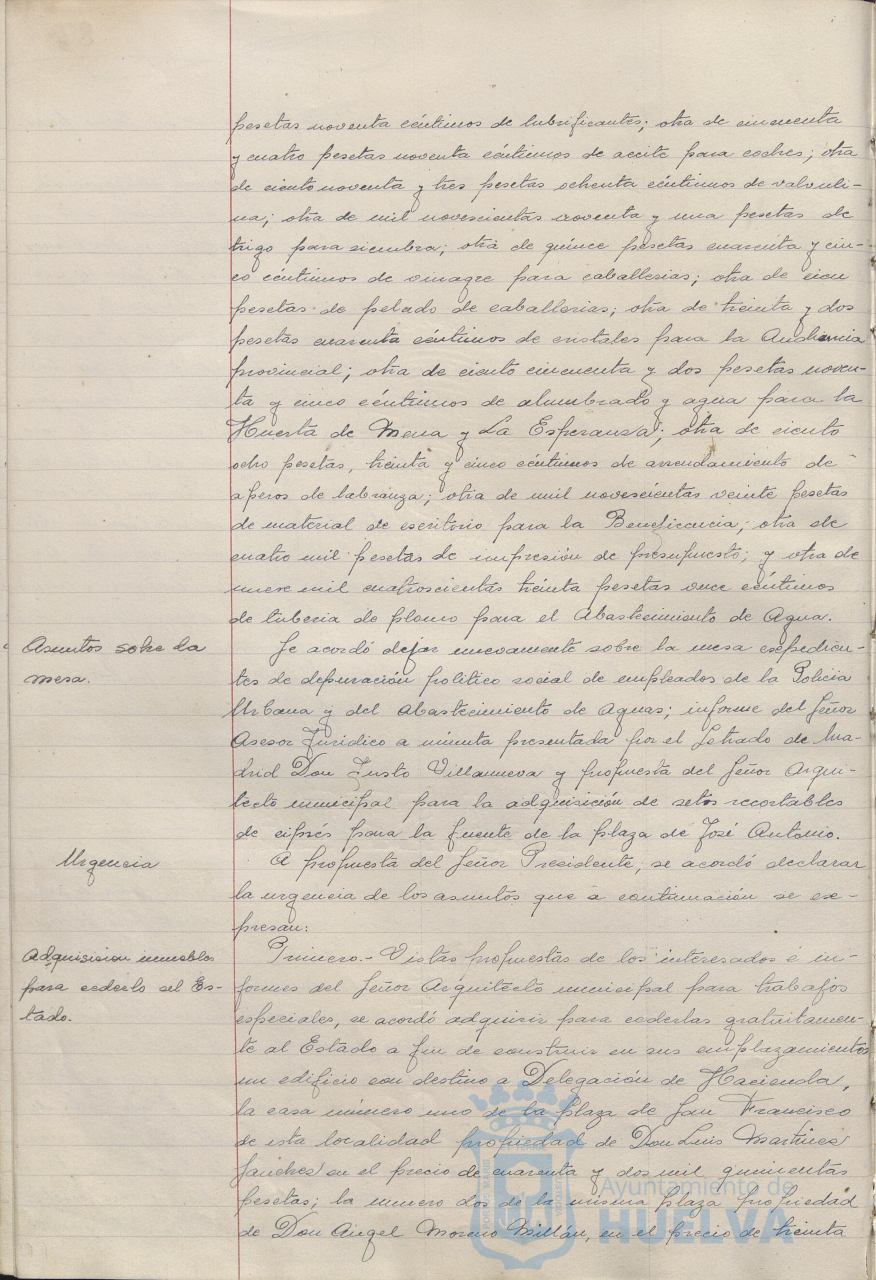 pesetas noventa céntimos de lubrificantes; otra de cincuenta
y cuatro pesetas noventa céntimos de aceite para coches; otra
de ciento noventa y tres pesetas ochenta céntimos de valvuli-
na; otra de mil novescientas noventa y una pesetas de
trigo para siembra; otra de quince pesetas cuarenta y cin-
co céntimos de vinagre para caballerias; otra de cien
pesetas de pelado de caballerias; otra de treinta y dos
pesetas cuarenta céntimos de cristales para la Audiencia
provincial; otra de ciento cincuenta y dos pesetas noven-
ta y cinco céntimos de alumbrado y agua para la
Huerta de Mena y La Esperanza; otra de ciento
ocho pesetas, treinta y cinco céntimos de arrendamiento de
aperos de labranza; otra de mil novescientas veinte pesetas
de material de escritorio para la Beneficencia; otra de
cuatro mil pesetas de impresión de presupuesto; y otra de
nueve mil cuatroscientas treinta pesetas once céntimos
de tuberia de plomo para el Abastecimiento de Agua.
Asuntos sobre la
mesa.
Se acordó dejar nuevamente sobre la mesa expedien-
tes de depuración politico social de empleados de la Policia
Urbana y del Abastecimiento de Aguas; informe del Señor
Asesor Juridico a minuta presentada por el Letrado de Ma-
drid Don Justo Villanueva y propuesta del Señor Arqui-
tecto municipal para la adquisición de setos recortables
de ciprés para la fuente de la plaza de José Antonio.
Urgencia
A propuesta del Señor Presidente, se acordó declarar
la urgencia de los asuntos que a continuación se ex-
presan:
Adquisicion inmuebles
para cederlo al Es-
tado.
Primero.- Vistas propuestas de los interesados é in-
formes del Señor Arquitecto municipal para trabajos
especiales, se acordó adquirir para cederlas gratuitamen-
te al Estado a fin de construir en sus emplazamientos
un edificio con destino a Delegación de Hacienda,
la casa número uno de la plaza de San Francisco
de esta localidad propiedad de Don Luis Martinez
Sanchez en el precio de cuarenta y dos mil quinientas
pesetas; la numero dos de la misma plaza propiedad
de Don Angel Moreno Millán, en el precio de treinta
Ayuntamiento de
HUELVA